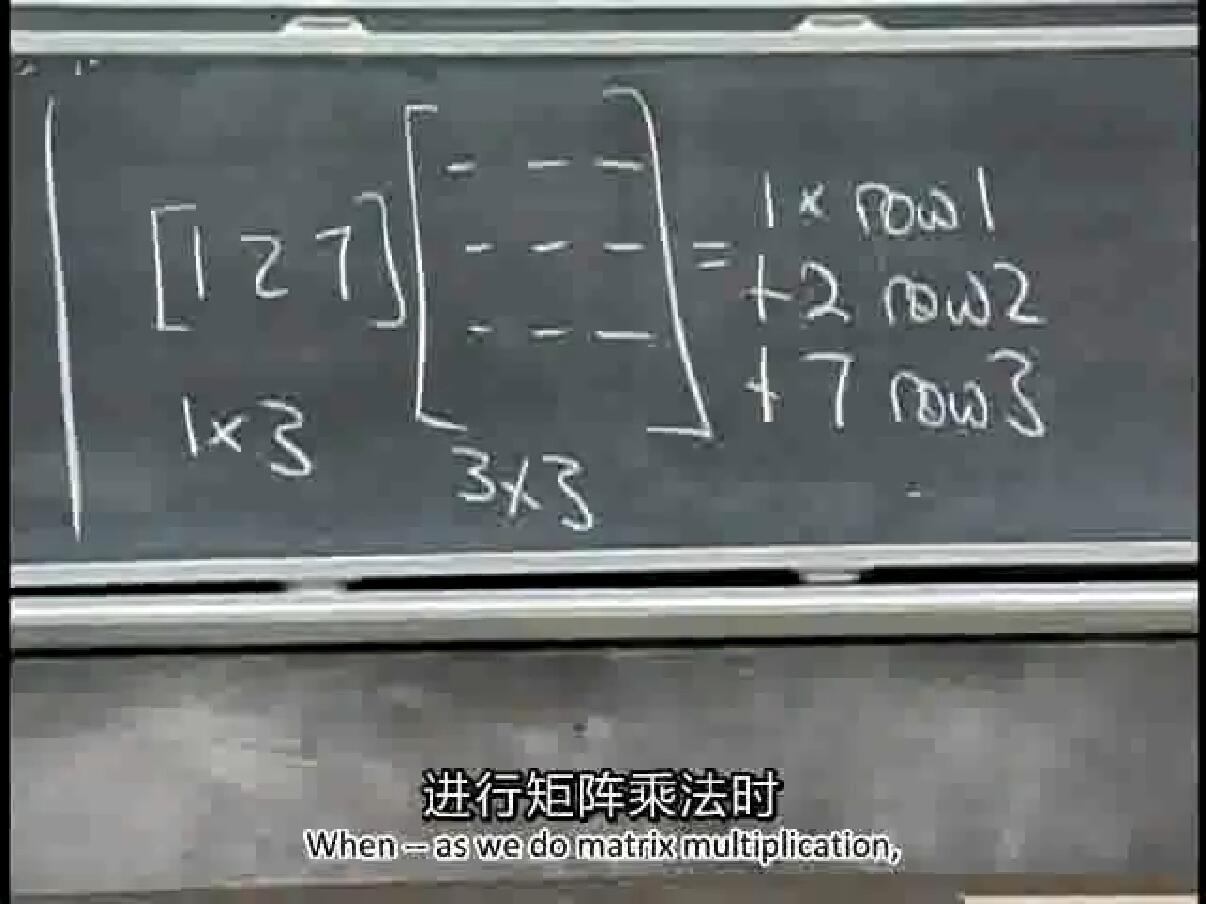 [1 2 7] [- - - - - - - - -] = 1 × row 1
+ 2 row 2
+ 7 row 3
1×3
3×3
进行矩阵乘法时
When – as we do matrix multiplication,